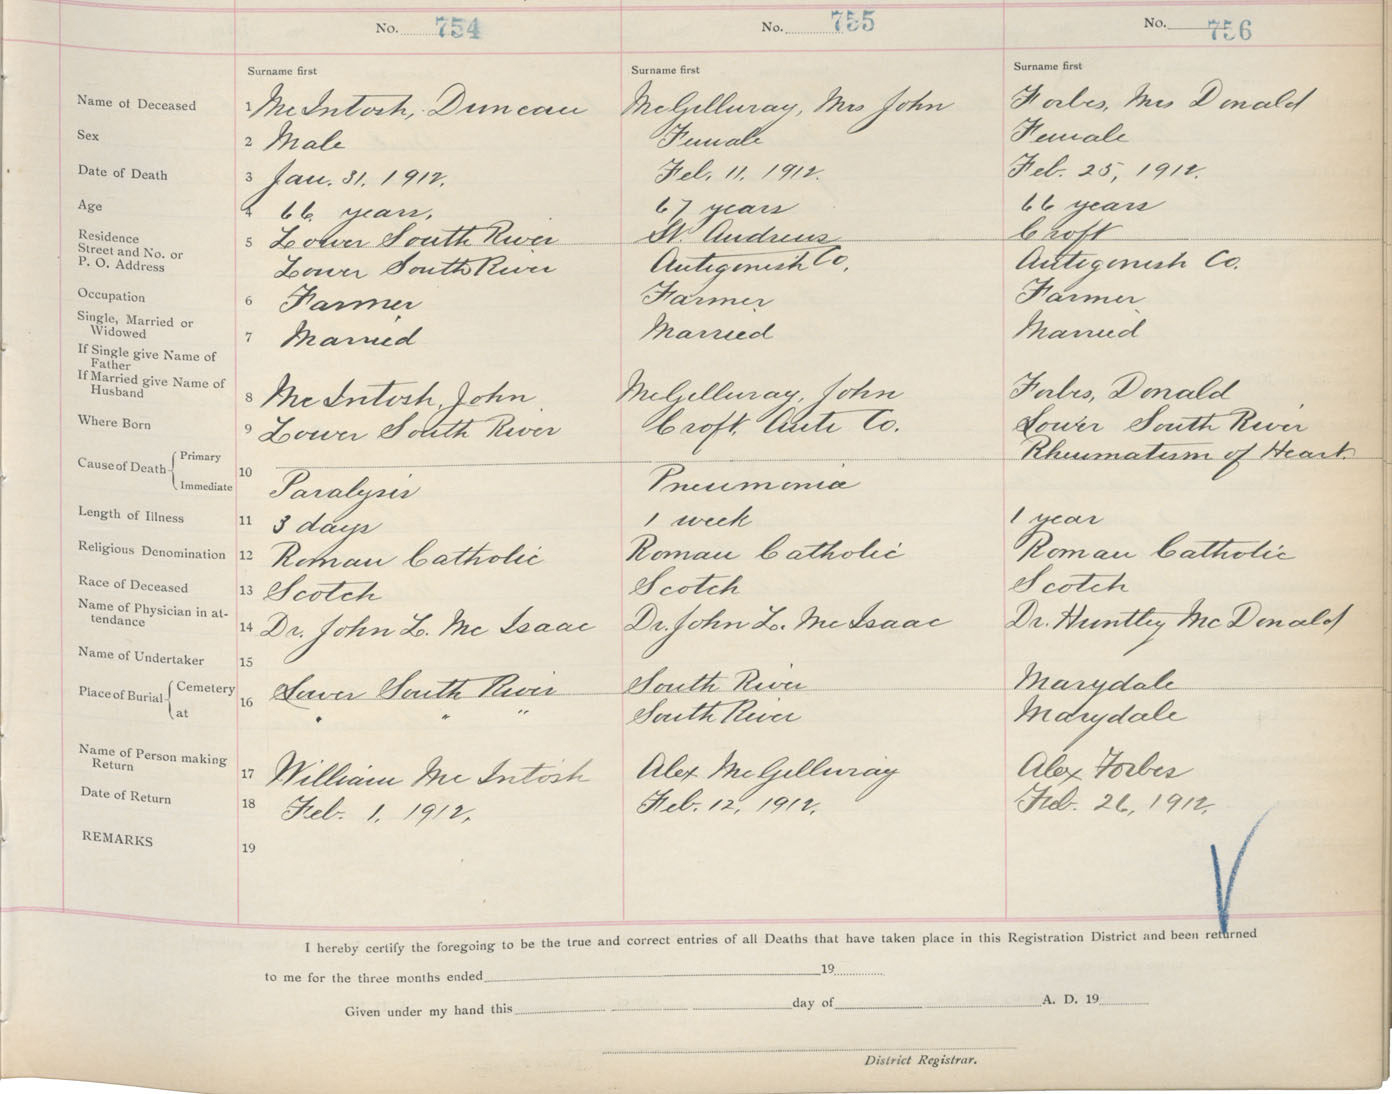 No. 754 No. 755 No. 756
Surname first Surname first Surname first
Name of Deceased 1 McIntosh, Duncan McGillivray, Mrs John Forbes, Mrs Donald
Sex 2 Male Female Female
Date of Death 3 Jan. 31. 1912. Feb. 11. 1912. Feb. 25, 1912.
Age 4 66 years. 67 years 66 years
Residence 5 Lower South River St. Andrews Croft
Street and No. or
P. O. Address Lower South River Antigonish Co. Antigonish Co.
Occupation 6 Farmer Farmer Farmer
Single, Married or
Widowed 7 Married Married Married
If Single give Name of
Father
If Married give Name of
Husband 8 McIntosh, John McGillivray, John Forbes, Donald
Where Born 9 Lower South River Croft Anti Co. Lower South River
Cause of Death Primary Rheumatism of Heart.
Immediate 10 Paralysis Pneumonia
Length of Illness 11 3 days 1 week 1 year
Religious Denomination 12 Roman Catholic Roman Catholic Roman Catholic
Race of Deceased 13 Scotch Scotch Scotch
Name of Physician in at-
tendance 14 Dr. John L. McIsaac Dr. John L. McIsaac Dr. Huntley McDonald
Name of Undertaker 15
Place of Burial Cemetery 16 Lower South River South River Marydale
at " " " South River Marydale
Name of Person making
Return 17 William McIntosh Alex McGillivray Alex Forbes
Date of Return 18 Feb. 1. 1912. Feb. 12, 1912. Feb. 26, 1912.
REMARKS 19
I hereby certify the foregoing to be the true and correct entries of all Deaths that have taken place in this Registration District and been returned
to me for the three months ended 19
Given under my hand this day of A. D. 19
District Registrar.